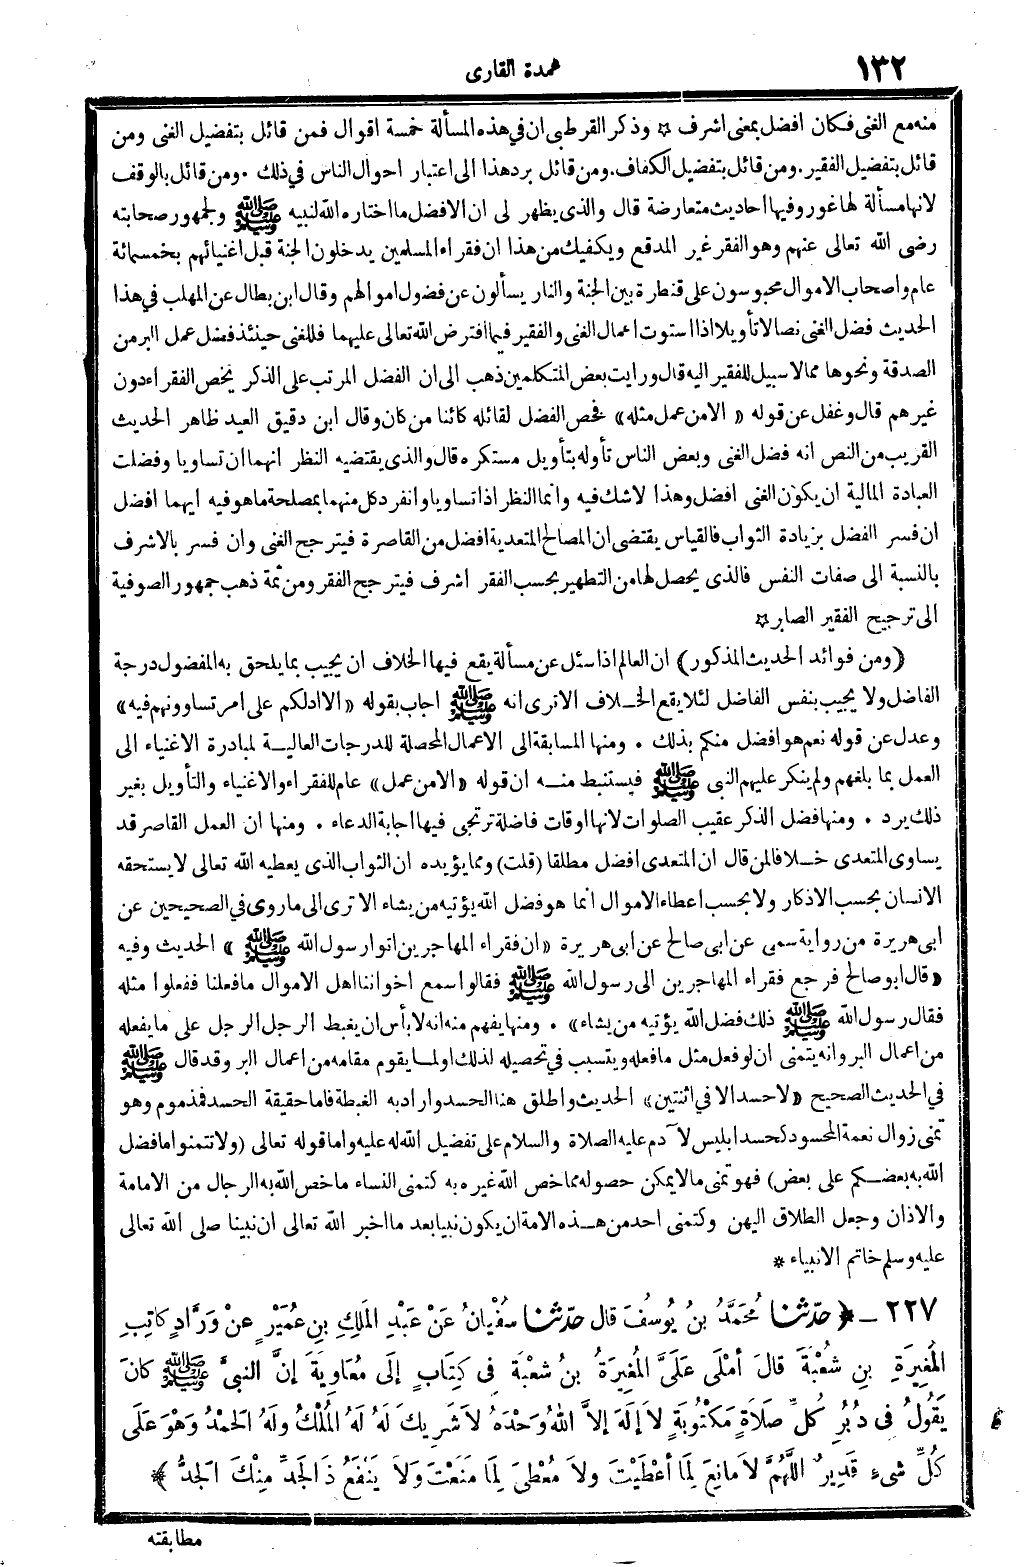 ١٣٢
عمدة القارى
منه مع الغنى فكان افضل بمعنى اشرف ۞ وذكر القرطبى ان فى هذه المسألة خمسة اقوال فمن قائل بتفضيل الغنى ومن
قائل بتفضيل الفقير . ومن قائل بتفضيل الكفاف . ومن قائل برد هذا الى اعتبار احوال الناس فى ذلك . ومن قائل بالوقف
لانها مسألة لها غور وفيها احاديث متعارضة قال والذى يظهر لى ان الافضل ما اختاره الله لنبيه ﷺ ولجمهور صحابته
رضى الله تعالى عنهم وهو الفقر غير المدقع ويكفيك من هذا ان فقراء المسلمين يدخلون الجنة قبل اغنيائهم بخمسمائة
عام واصحاب الاموال محبوسون على قنطرة بين الجنة والنار يسألون عن فضول اموالهم وقال ابن بطال عن المهلب فى هذا
الحديث فضل الغنى نصا لا تأويلا اذا استوت اعمال الغنى والفقير فيما افترض الله تعالى عليهما فللغنى حينئذ فضل عمل البر من
الصدقة ونحوها مما لا سبيل للفقير اليه قال ورايت بعض المتكلمين ذهب الى ان الفضل المرتب على الذكر يخص الفقراء دون
غيرهم قال وغفل عن قوله « الا من عمل مثله » فخص الفضل لقائله كائنا من كان وقال ابن دقيق العيد ظاهر الحديث
القريب من النص انه فضل الغنى وبعض الناس تأوله بتأويل مستكره قال والذى يقتضيه النظر انهما ان تساويا وفضلت
العبادة المالية ان يكون الغنى افضل وهذا لا شك فيه وانما النظر اذا تساويا وانفرد كل منهما بمصلحة ما هو فيه ايهما افضل
ان فسر الفضل بزيادة الثواب فالقياس يقتضى ان المصالح المتعدية افضل من القاصرة فيترجح الغنى وان فسر بالاشرف
بالنسبة الى صفات النفس فالذى يحصل لها من التطهير بحسب الفقر اشرف فيترجح الفقر ومن ثمة ذهب جمهور الصوفية
الى ترجيح الفقير الصابر ۞
( ومن فوائد الحديث المذكور ) ان العالم اذا سئل عن مسألة يقع فيها الخلاف ان يجيب بما يلحق به المفضول درجة
الفاضل ولا يجيب بنفس الفاضل لئلا يقع الخلاف الا ترى انه ﷺ اجاب بقوله « الا ادلكم على امر تساوونهم فيه »
وعدل عن قوله نعم هو افضل منكم بذلك . ومنها المسابقة الى الاعمال المحصلة للدرجات العالية لمبادرة الاغنياء الى
العمل بما بلغهم ولم ينكر عليهم النبى ﷺ فيستنبط منه ان قوله « الا من عمل » عام للفقراء والاغنياء والتأويل بغير
ذلك يرد . ومنها فضل الذكر عقيب الصلوات لانها اوقات فاضلة ترتجى فيها اجابة الدعاء . ومنها ان العمل القاصر قد
يساوى المتعدى خلافا لمن قال ان المتعدى افضل مطلقا ( قلت ) ومما يؤيده ان الثواب الذى يعطيه الله تعالى لا يستحقه
الانسان بحسب الاذكار ولا بحسب اعطاء الاموال انما هو فضل الله يؤتيه من يشاء الا ترى الى ما روى فى الصحيحين عن
ابى هريرة من رواية سمى عن ابى صالح عن ابى هريرة « ان فقراء المهاجرين اتوا رسول الله ﷺ » الحديث وفيه
« قال ابو صالح فرجع فقراء المهاجرين الى رسول الله ﷺ فقالوا سمع اخواننا اهل الاموال ما فعلنا ففعلوا مثله
فقال رسول الله ﷺ ذلك فضل الله يؤتيه من يشاء » . ومنها يفهم منه انه لا بأس ان يغبط الرجل الرجل على ما يفعله
من اعمال البر وانه يتمنى ان لو فعل مثل ما فعله ويتسبب فى تحصيله لذلك او لما يقوم مقامه من اعمال البر وقد قال ﷺ
فى الحديث الصحيح « لا حسد الا فى اثنتين » الحديث واطلق هنا الحسد واراد به الغبطة فاما حقيقة الحسد فمذموم وهو
تمنى زوال نعمة المحسود كحسد ابليس لآدم عليه الصلاة والسلام على تفضيل الله له عليه واما قوله تعالى ( ولا تتمنوا ما فضل
الله به بعضكم على بعض ) فهو تمنى ما لا يمكن حصوله مما خص الله غيره به كتمنى النساء ما خص الله به الرجال من الامامة
والاذان وجعل الطلاق اليهن وكتمنى احد من هذه الامة ان يكون نبيا بعد ما اخبر الله تعالى ان نبينا صلى الله تعالى
عليه وسلم خاتم الانبياء *
٢٢٧ - ﴿ حدّثنا مُحَمَّدُ بنُ يُوسُفَ قال حدّثنا سفْيَانُ عَنْ عَبْدِ المَلِكِ بنِ عُمَيْرٍ عنْ وَرَّادٍ كاتِبِ
المُغِيرَةِ بنِ شُعْبَةَ قالَ أمْلَى عَلَىَّ المُغِيرَةُ بنُ شعْبَةَ فى كِتَابٍ إلَى مُعَاوِيَةَ إنَّ النبىَّ ﷺ كانَ
يَقُولُ فى دُبُرِ كُلِّ صَلاَةٍ مَكْتُوبَةٍ لاَ إلَهَ إلاَّ اللهُ وَحْدَهُ لاَ شَرِيكَ لَهُ لَهُ المُلْكُ ولَهُ الحَمْدُ وَهْوَ عَلَى
كُلِّ شىءٍ قَدِيرٌ اللَّهُمَّ لاَ مانِعَ لِمَا أعْطَيْتَ ولاَ مُعْطِىَ لِمَا مَنَعْتَ وَلاَ يَنْفَعُ ذَا الجَدِّ مِنْكَ الجَدُّ ﴾ *
مطابقته